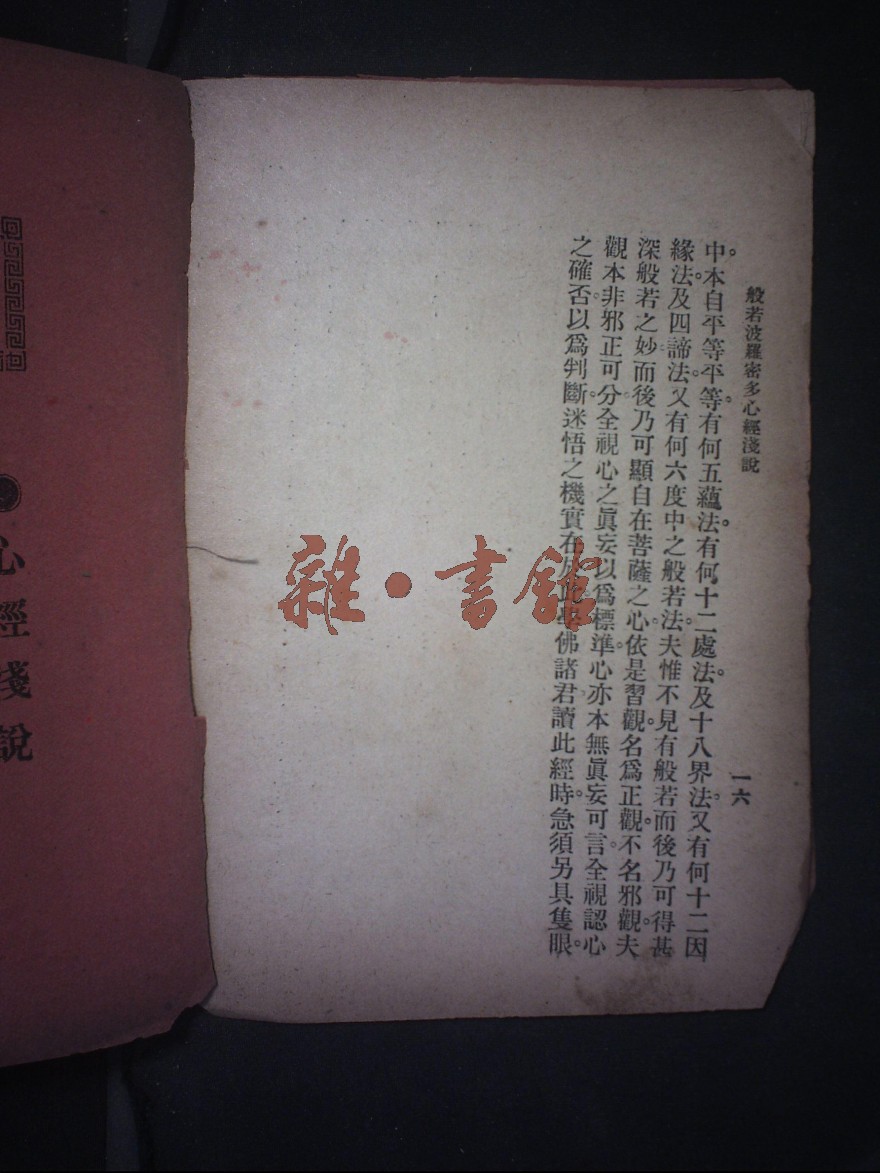 般若波羅密多心經淺說
一六
中。本自平等平等。有何五蘊法。有何十二處法。及十八界法。又有何十二因
緣法。及四諦法。又有何六度中之般若法。夫惟不見有般若而後乃可得甚
深般若之妙。而後乃可顯自在菩薩之心。依是習觀。名為正觀。不名邪觀。夫
觀本非邪正可分。全視心之眞妄以爲標準。心亦本無眞妄可言。全視認心
之確否。以爲判斷。迷悟之機。實在學佛諸君讀此經時。急須另具隻眼。
雜·書館
心經淺說